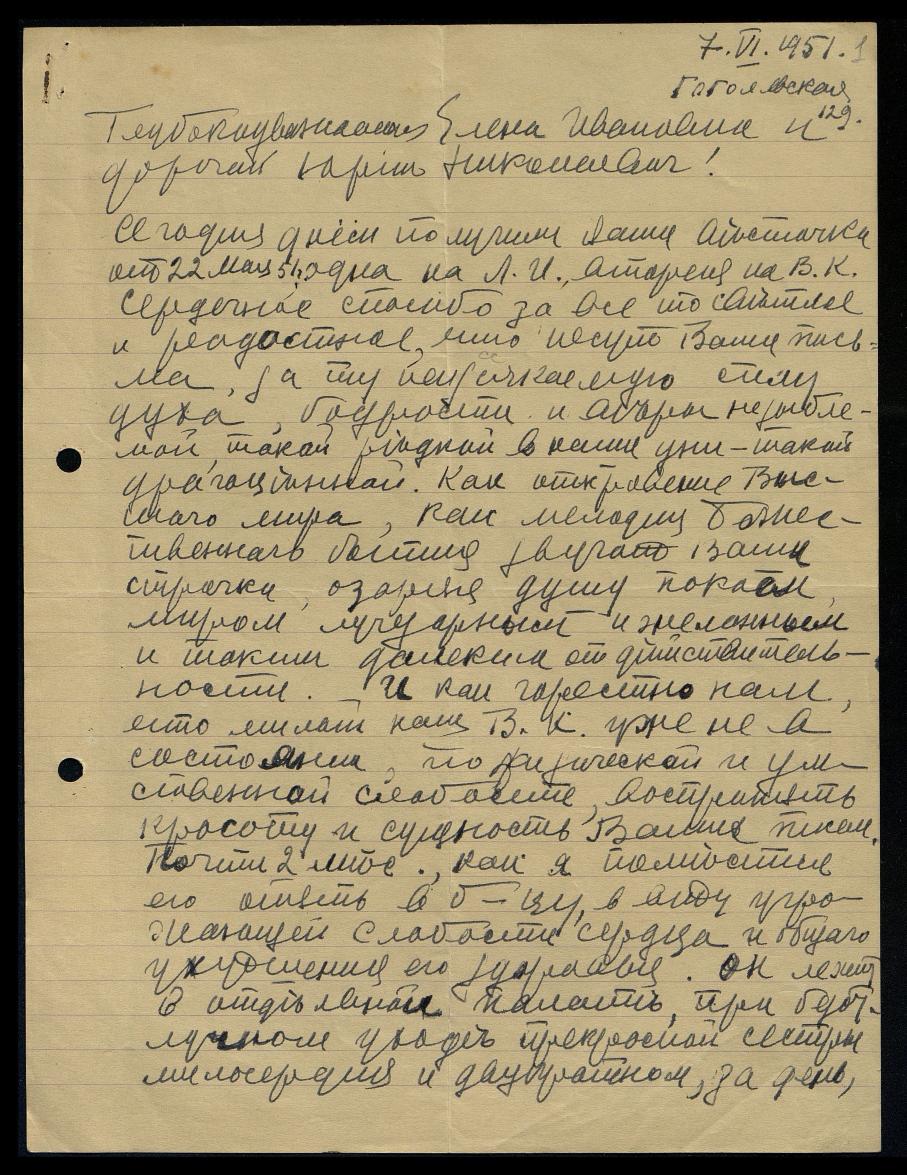 7. VI. 1951. 1
Гоголевская
129.
Глубокоуважаемая Елена Ивановна и
дорогой Юрій Николаевич!
Сегодня днём получили Ваши вѣсточки
от 22 Мая 51, одна на Л. И., вторая на В. К.
Сердечное спасибо за все то свѣтлое
и радостное, что несут Ваши пись-
ма, за ту неизсякаемую силу
духа, бодрости и вѣры незыбле-
мой, такой рѣдкой в наши дни – такой
драгоцѣнной. Как откровение Выс-
шаго мира, как мелодия Божес-
твеннаго бытия звучат Ваши
строчки, озаряя душу покоем,
миром лучезарным и желанным
и таким далеким от дѣйствитель-
ности. – И как горестно нам,
что милый наш В. К. уже не в
состоянии, по физической и ум-
ственной слабости, воспринять
красоту и сущность Ваших писем.
Почти 2 мѣс., как я помѣстила
его опять в б–цу, в виду угро-
жающей слабости сердца и общаго
ухудшения его здоровья. Он лежит
в отдѣльной палатѣ, при безот-
лучном уходѣ прекрасной сестры
милосердия и двукратном, за день,